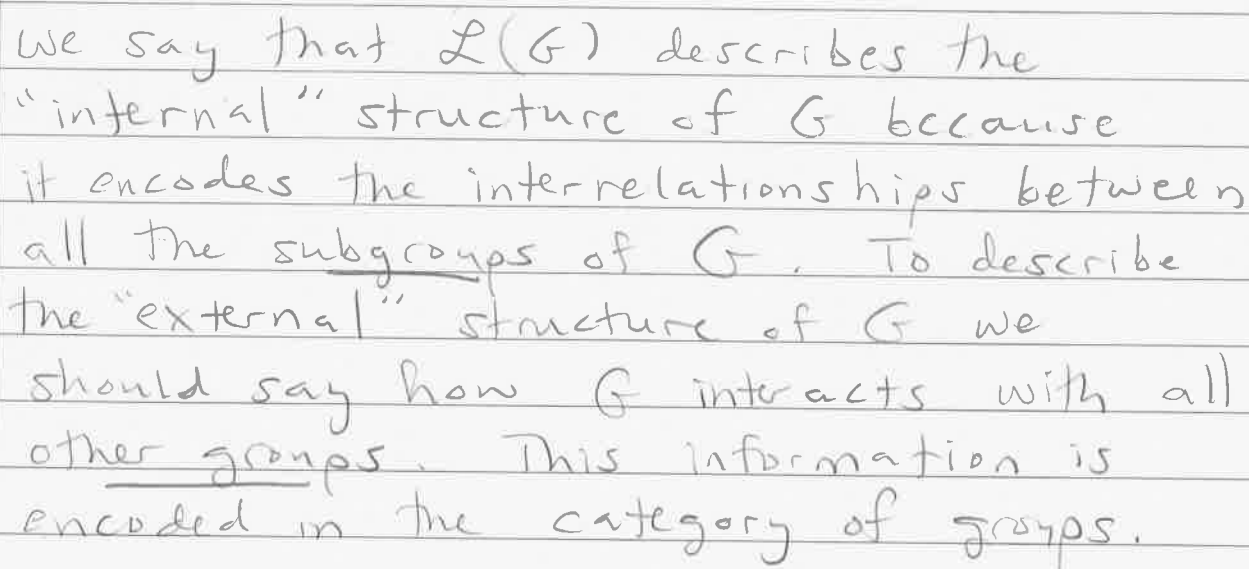 We say that ℒ(G) describes the
"internal" structure of G because
it encodes the interrelationships between
all the subgroups of G. To describe
the "external" structure of G we
should say how G interacts with all
other groups. This information is
encoded in the category of groups.